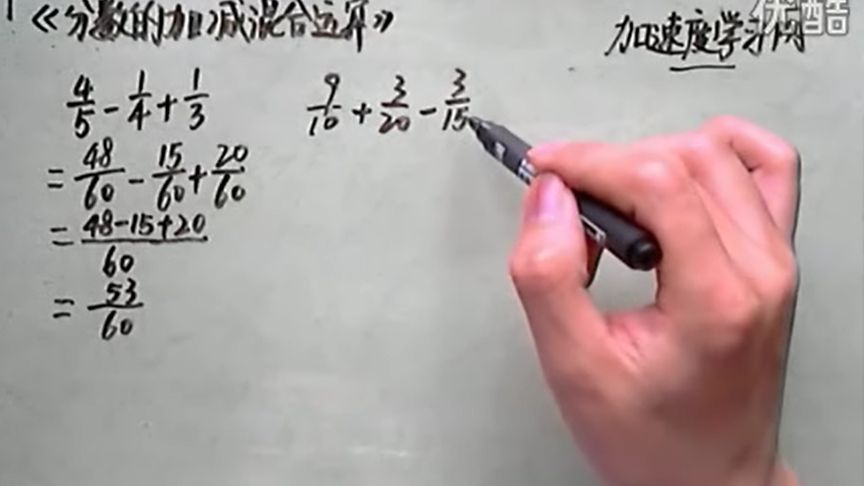 《分数的加减混合运算》
加速度学习网
优酷
4/5 - 1/4 + 1/3
= 48/60 - 15/60 + 20/60
= 48-15+20/60
= 53/60
9/10 + 3/20 - 3/15